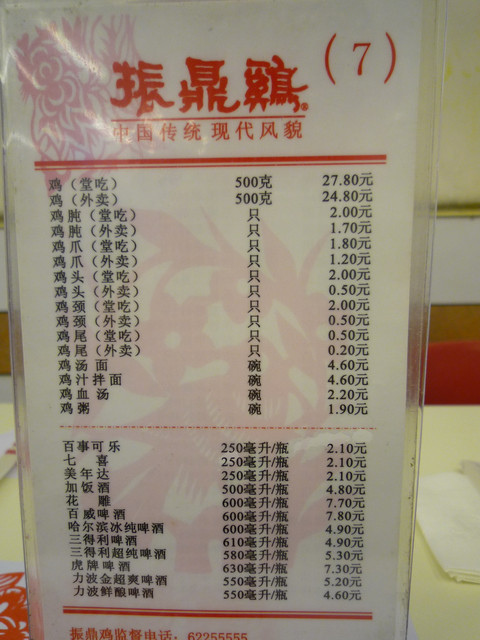 振鼎鷄® (7)
中国传统 现代风貌
鸡（堂吃） 500克 27.80元
鸡（外卖） 500克 24.80元
鸡肫（堂吃） 只 2.00元
鸡肫（外卖） 只 1.70元
鸡爪（堂吃） 只 1.80元
鸡爪（外卖） 只 1.20元
鸡头（堂吃） 只 2.00元
鸡头（外卖） 只 0.50元
鸡颈（堂吃） 只 2.00元
鸡颈（外卖） 只 0.50元
鸡尾（堂吃） 只 0.50元
鸡尾（外卖） 只 0.20元
鸡汤面 碗 4.60元
鸡汁拌面 碗 4.60元
鸡血汤 碗 2.20元
鸡粥 碗 1.90元
百事可乐 250毫升/瓶 2.10元
七喜 250毫升/瓶 2.10元
美年达 250毫升/瓶 2.10元
加饭酒 500毫升/瓶 4.80元
花雕 600毫升/瓶 7.70元
百威啤酒 600毫升/瓶 7.80元
哈尔滨冰纯啤酒 600毫升/瓶 4.90元
三得利啤酒 610毫升/瓶 4.90元
三得利超纯啤酒 580毫升/瓶 5.30元
虎牌啤酒 630毫升/瓶 7.30元
力波金超爽啤酒 550毫升/瓶 5.20元
力波鲜酿啤酒 550毫升/瓶 4.60元
振鼎鸡监督电话：62255555